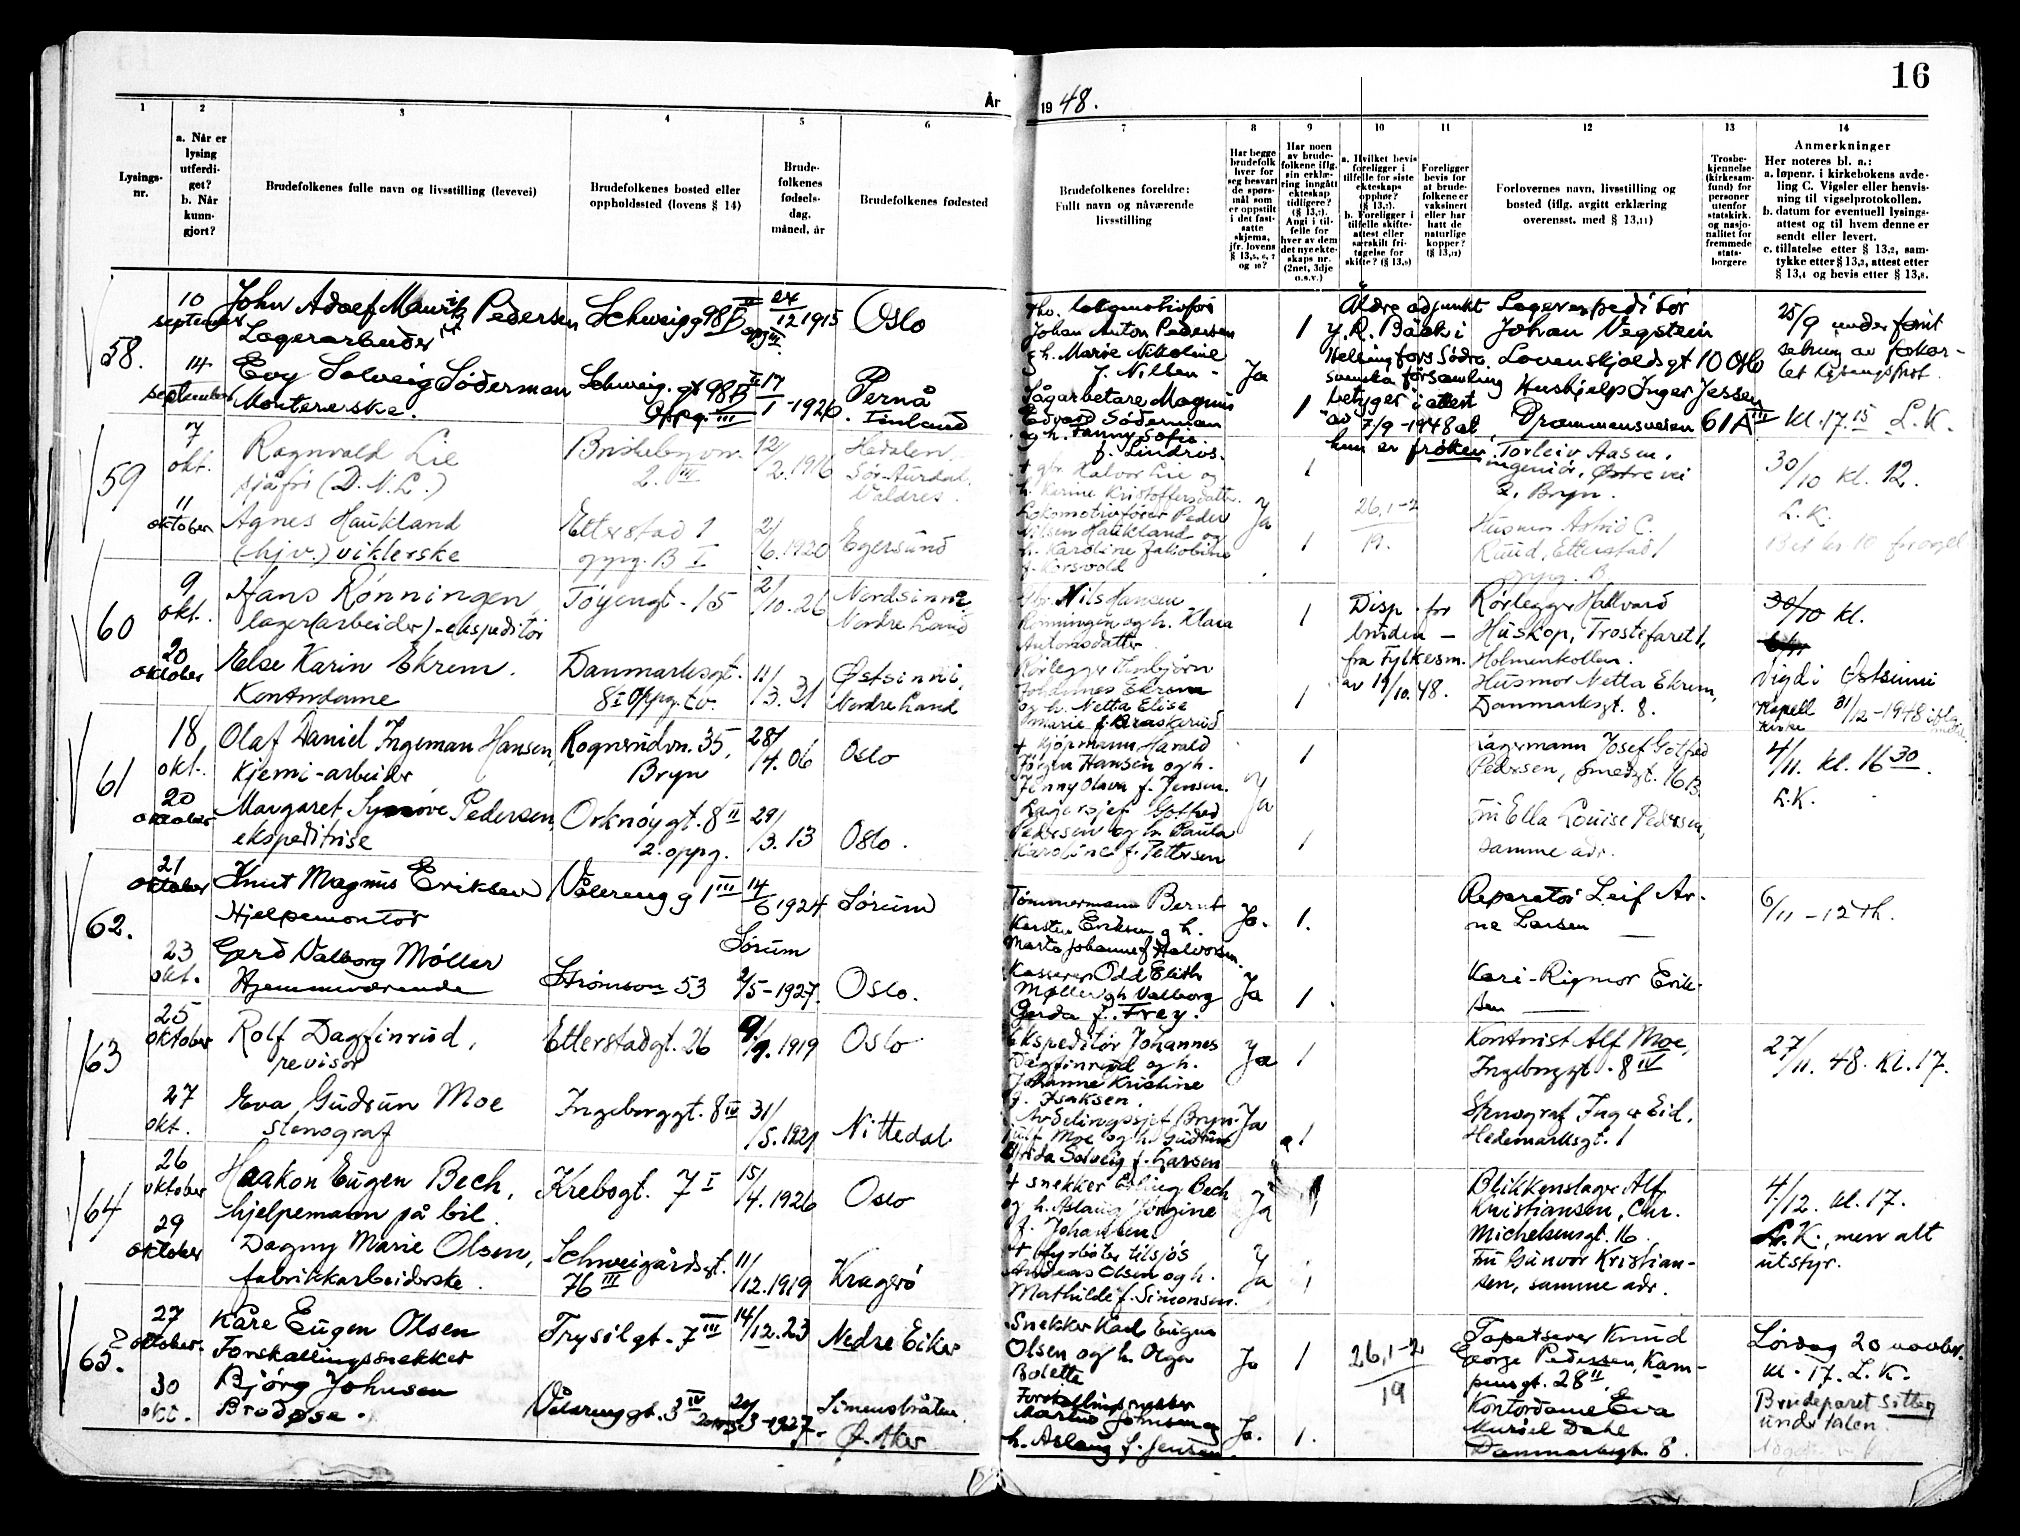 16
År
1948.
1
2
3
4
5
6
7
8
9
10
11
12
13
14
Lysings-
nr.
a. Når er
lysing
utferdi-
get?
b. Når
kunn-
gjort?
Brudefolkenes fulle navn og livsstilling (levevei)
Brudefolkenes bosted eller
oppholdssted (lovens § 14)
Brude-
folkenes
fødsels-
dag,
måned, år
Brudefolkenes fødested
Brudefolkenes foreldre:
Fullt navn og nåværende
livsstilling
Har begge
brudefolk
hver for
seg besvart
de spørs-
mål som
er oppstilt
i det fast-
satte
skjema,
jfr. lovens
Har noen
av brude-
folkene iflg.
sin erklæ-
ring inngått
ekteskap
tidligere?
Angi i til-
felle for
hver av dem
det nye ekte-
skaps nr.
(2net, 3dje
o.s.v.)
a. Hvilket bevis
foreligger i
tilfelle for siste
ekteskaps
opphør?
b. Foreligger i
tilfelle skifte-
attest eller
særskilt fri-
tagelse for
Foreligger
bevis for
at brude-
folkene er
vaksinert
eller har
hatt de
naturlige
kopper?
Forlovernes navn, livsstilling og
bosted (iflg. avgitt erklæring
overensst. med § 13,11)
Trosbe-
kjennelse
(kirkesam-
fund) for
personer
utenfor
statskirk.
og nasjo-
nalitet for
fremmede
stats-
borgere
Anmerkninger
Her noteres bl. a.:
a. løpenr. i kirkebokens avde-
ling C. Vigsler eller henvis-
ning til vigselprotokollen.
b. datum for eventuell lysings-
attest og til hvem denne er
sendt eller levert.
c. tillatelse etter § 13,2, sam-
tykke etter § 13,3, attest etter
§ 13,4 og bevis etter § 13,8.
58.
10
september
John Adolf Mauritz Pedersen
Lagerarbeider
Schweigg 98B
24/12 1915
Oslo
Johan Anton Pedersen
g h. Marie Nikoline
f. Nilsen
1
Lagerekspeditør
Johan Vegstein
Løvenskjoldsgt 10 Oslo
25/9
14
september
Evy Solveig Söderman
Montererske.
Schweig. gt 98B
Oppg. III
17/1-1926
Pernå
Finland
Ja
Sågarbetare Magnus
Edvard Söderman
og h. Fanny Sofia
f. Lindros.
1
Äldre adjunkt
Helsingfors Södra
svenska församling
betyger i attest
av 7/9-1948 at
hun er frøken
Hushjelp Inger Jessen
Drammensveien 61A III
Kl. 17.15 L.K.
59
7
okt.
Ragnvald Lie
sjåfør (D.N.L.)
Briskebyvn.
2. VII
12/2.1916
Hedalen,
Sør-Aurdal,
Valdres.
+ gbr. Halvor Lie og
h. Karine Kristoffersdatter
1
Torleiv Aasen,
ingeniør, Østre vei
2, Bryn.
30/10 kl. 12.
L.K.
11
oktober
Agnes Haukland
(hjv.) viklerske
Etterstad 1
oppg. B I
2/6.1920
Egersund
Lokomotivfører Peder
Nilsen Haukland og
h. Karoline Jakobine
f. Korsvold
Ja
1
26,1-2
19.
Husmor Astrid C.
Ruud, Etterstad 1
oppg. B
60
9
okt.
Hans Rønningen,
lager(arbeider)-ekspeditør
Tøyengt. 15
2/10.26
Nordsinni
Nordre Land
Gbr. Nils Hansen
Rønningen og h. Klara
Antonsdatter
1
Disp. for
bruden —
fra Fylkesm.
av 19/10.48.
Rørlegger Hallvard
Huskop, Trostefaret 1,
Holmenkollen.
30/10 kl.
20
oktober
Else Karin Ekrem.
Kontordame
Danmarksgt.
8 I oppg. tv.
11/3.31
Østsinni,
Nordre Land
Rørlegger Thorbjørn
Johannes Ekrem
og h. Netta Elise
Marie f. Braskerud
1
Husmor Netta Ekrem,
Danmarksgt. 8.
Vigd i Østsinni
Kapell 31/12-1948
61
18
okt.
Olaf Daniel Ingeman Hansen,
Kjemi-arbeider
Rognerudvn. 35,
Bryn
28/4.06
Oslo
+ Kjørmann Harald
Jørgen Hansen og h.
Jenny Olava f. Jensen.
1
Lagermann Josef Gotfred
Pedersen, Smedgt. 16B
4/11. kl. 16 30.
L.K.
20
oktober
Margaret Synnøve Pedersen,
ekspeditrise
Orknøygt. 8 II
2. oppg.
29/3.13
Oslo.
Ja
Lagersjef Gotfred
Pedersen og h. Paula
Karoline f. Pettersen
1
Fru Ella Louise Pedersen,
samme adr.
62.
21
oktober
Knut Magnus Eriksen
Hjelpemontør
Vålereng g 1 III
14/6 1924
Sørum
Tømmermann Bernt
Karsten Eriksen g h.
Marta Johanne f Halvorsen.
Ja.
1.
Reparatør Leif Ar-
ne Larsen —
6/11 - 12 th.
23
okt.
Gerd Valborg Møller
Hjemmeværende
Sørum
Strømsvn 53
2/5-1927.
Oslo.
Kasserer Odd Elith
Møller gh Valborg
Gerda f. Frey.
Ja
1.
Kari-Rigmor Erik-
sen —
63
25
oktober
Rolf Dagfinrud,
revisor
Etterstadgt. 26
9/9.1919
Oslo
Ekspeditør Johannes
Dagfinrud og h.
Johanne Kristine
f. Isaksen.
Ja
1
Kontorist Alf Moe,
Ingeborggt. 8 IV
27/11.48. kl. 17.
27
okt.
Eva Gudrun Moe
stenograf
Ingeborggt. 8 IV
31/5.1921
Nittedal
Avdelingssjef Bryn-
julf Moe og h. Gudrun
Frida Solveig f. Larsen
Ja
1
Stenograf Inger Eid,
Hedemarksgt. 1
64
26
oktober
Haakon Eugen Bech,
hjelpemann på bil.
Krebsgt. 7 I
15/4.1926
Oslo
+ snekker Erling Bech
og h. Aslaug Jørgine
f. Johansen.
Ja
1
Blikkenslager Alf
Kristiansen, Chr.
Michelsensgt. 16.
4/12. kl. 17.
L.K., men alt
utstyr.
29
oktober
Dagny Marie Olsen,
fabrikkarbeiderske.
Schweigårdsgt.
76 III
11/12.1919
Kragerø
+ fyrbøter tilsjøs
Andreas Olsen og h.
Mathilde f. Simonsen.
Ja
1
Fru Gunvor Kristian-
sen, samme adr.
65.
27
oktober.
Kåre Eugen Olsen
Forskallingssnekker
Trysilgt. 7 III
14/12.23
Nedre Eiker
Snekker Karl Eugen
Olsen og h. Olga
Bolette
Ja
1
26,1-2
19
Tapetserer Knud
George Pedersen, Kam-
pengt. 28 II.
Lørdag 20 novbr.
kl. 17. L.K.
30
okt.
Bjørg Johnsen
Brodøse.
Vålerenggt. 3 IV
20/3-1927.
Simensbråten
Ø. Aker
Forskallingssnekker
Martus Johnsen og
h. Aslaug f. Jensen
Ja.
1.
Kontordame Eva
Muriel Dahl
Danmarksgt. 8.
Brudeparet sitter
under talen.